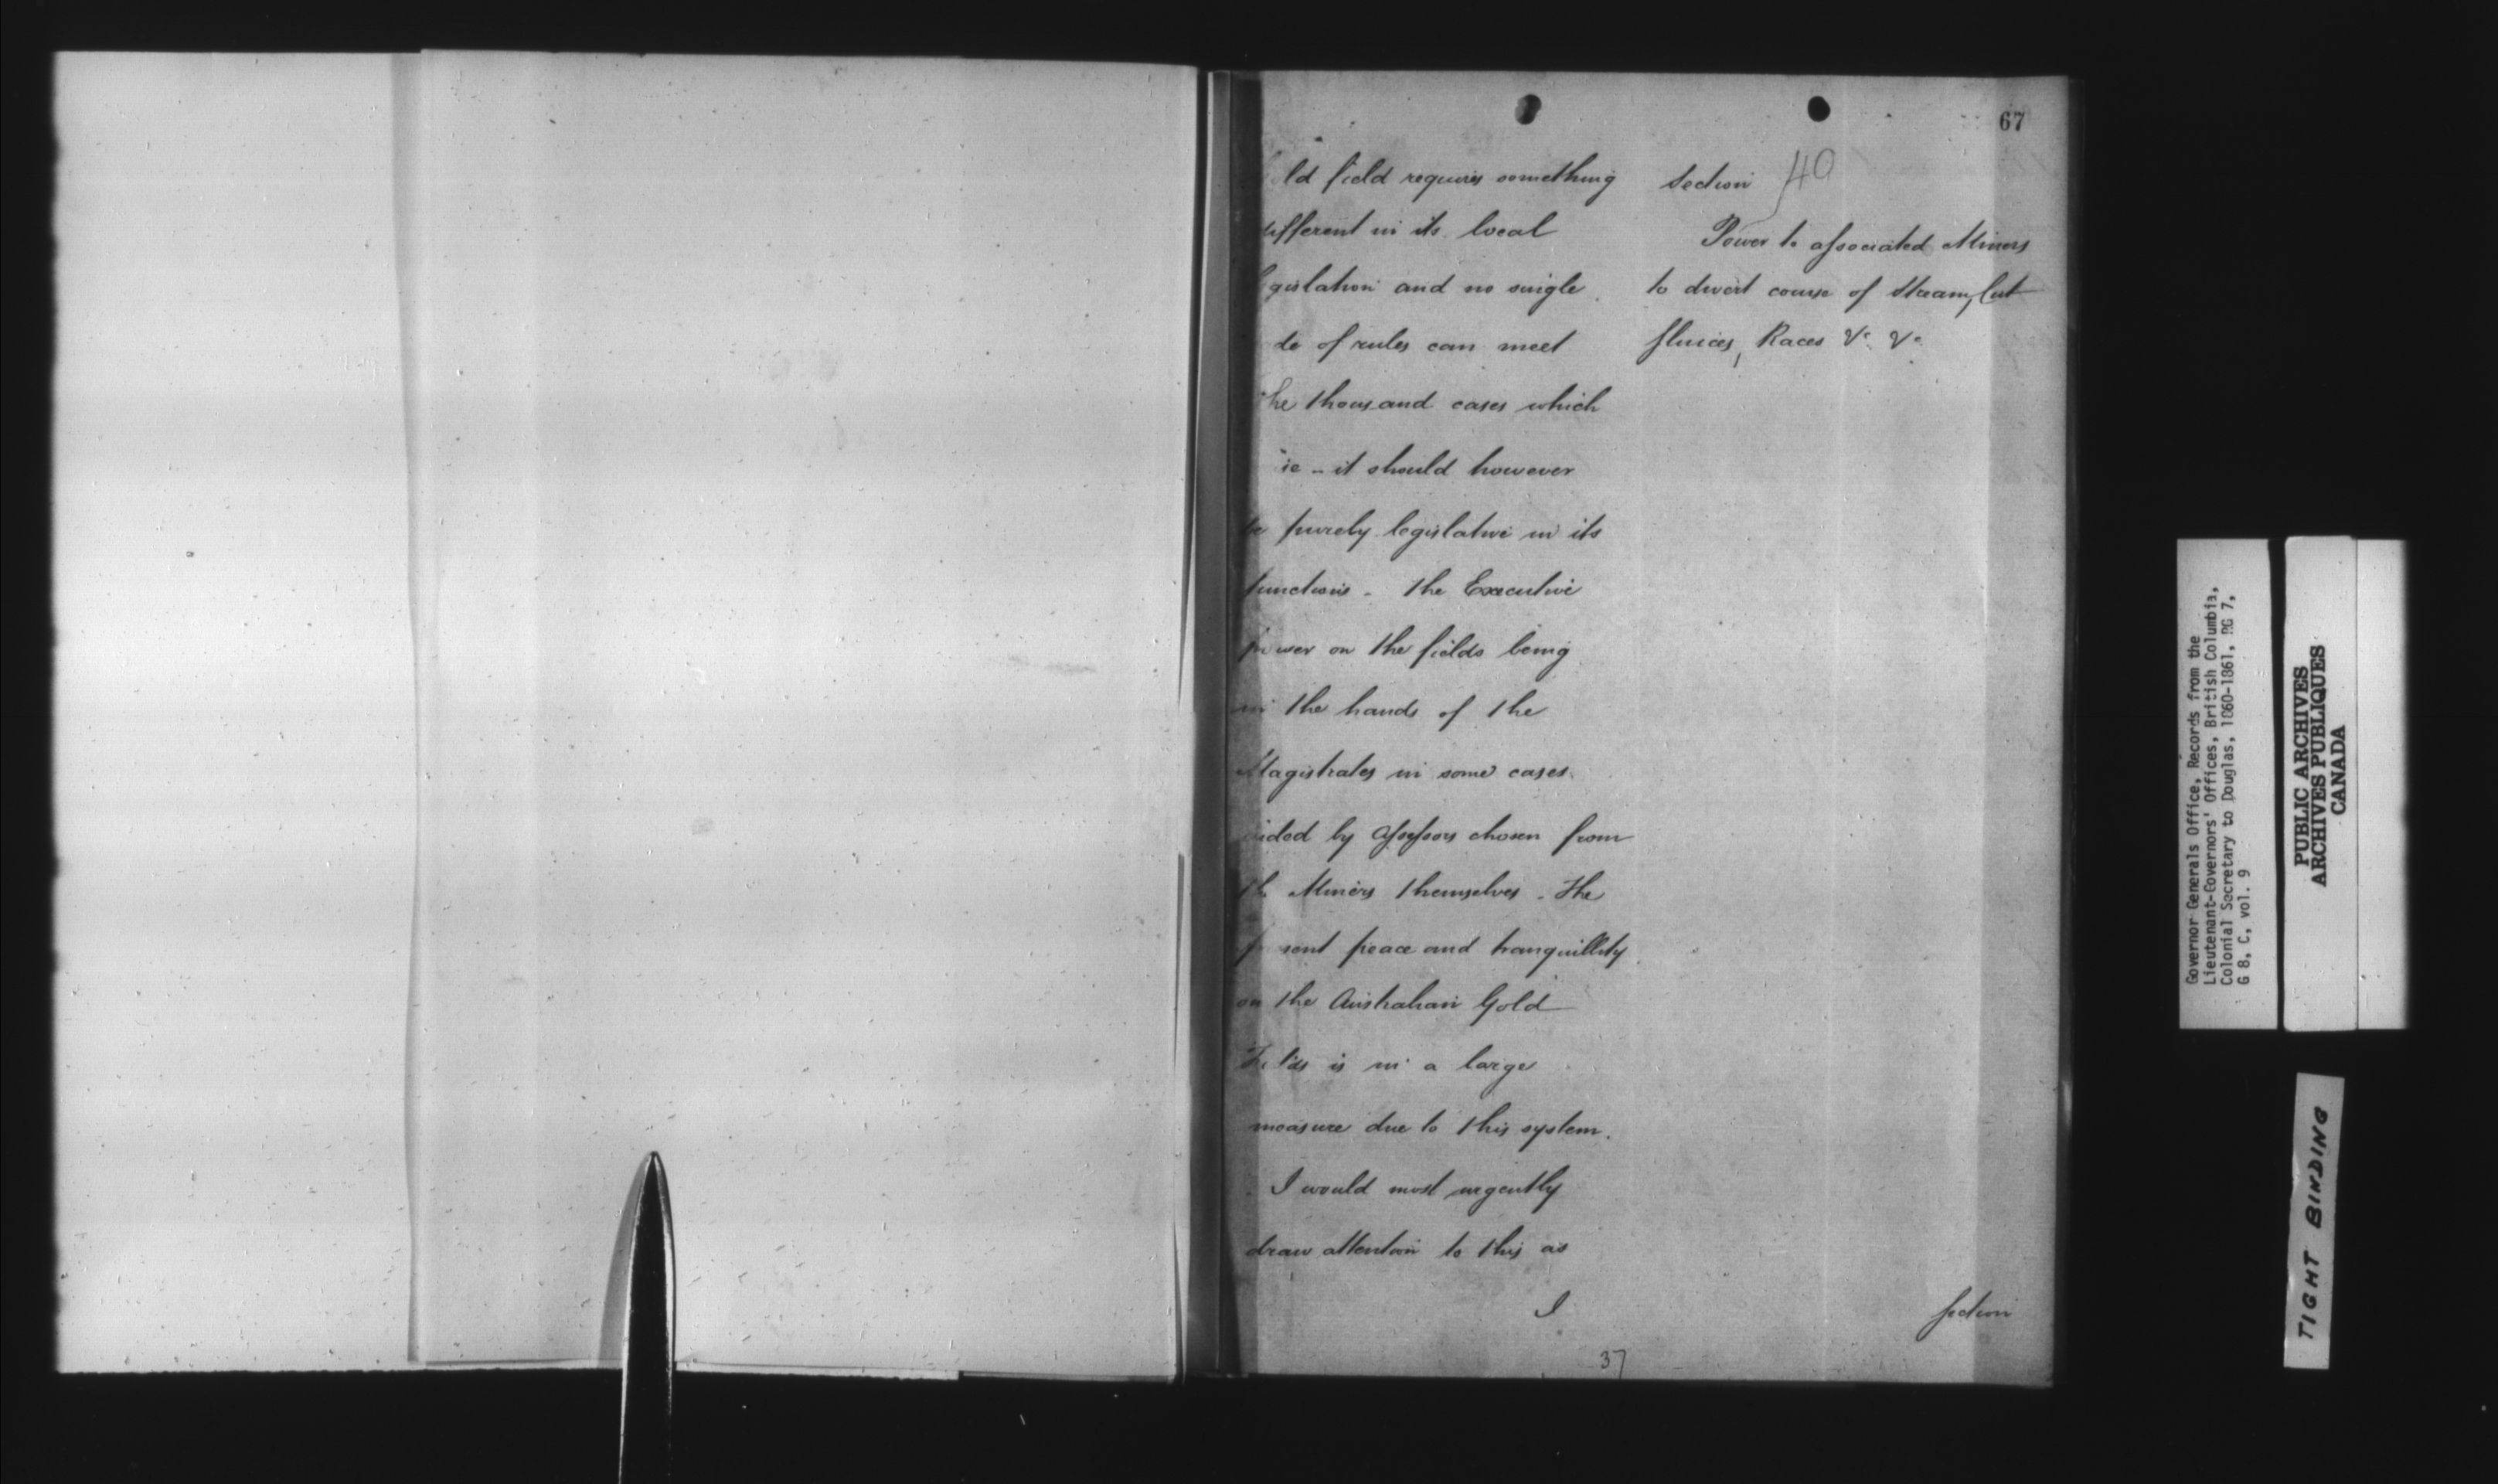 67
old field requires something
different in its local
gislation and no single
de of rules can meet
the thousand cases which
ise - it should however
be purely legislative in its
functions - the Executive
power on the fields being
in the hands of the
Magistrates in some cases
aided by Assessors chosen from
the Miners themselves. The
present peace and tranquillity
on the Australian Gold
Fields is in a large
measure due to this system.
I would most urgently
draw attention to this as
I
Section 40
Power to associated Miners
to divert course of Stream, Cut
Sluices, Races &c. &c.
Section
37
Governor Generals Office, Records from the
Lieutenant-Governors' Offices, British Columbia,
Colonial Secretary to Douglas, 1860-1861, RG 7,
G 8, C, vol. 9
PUBLIC ARCHIVES
ARCHIVES PUBLIQUES
CANADA
TIGHT BINDING